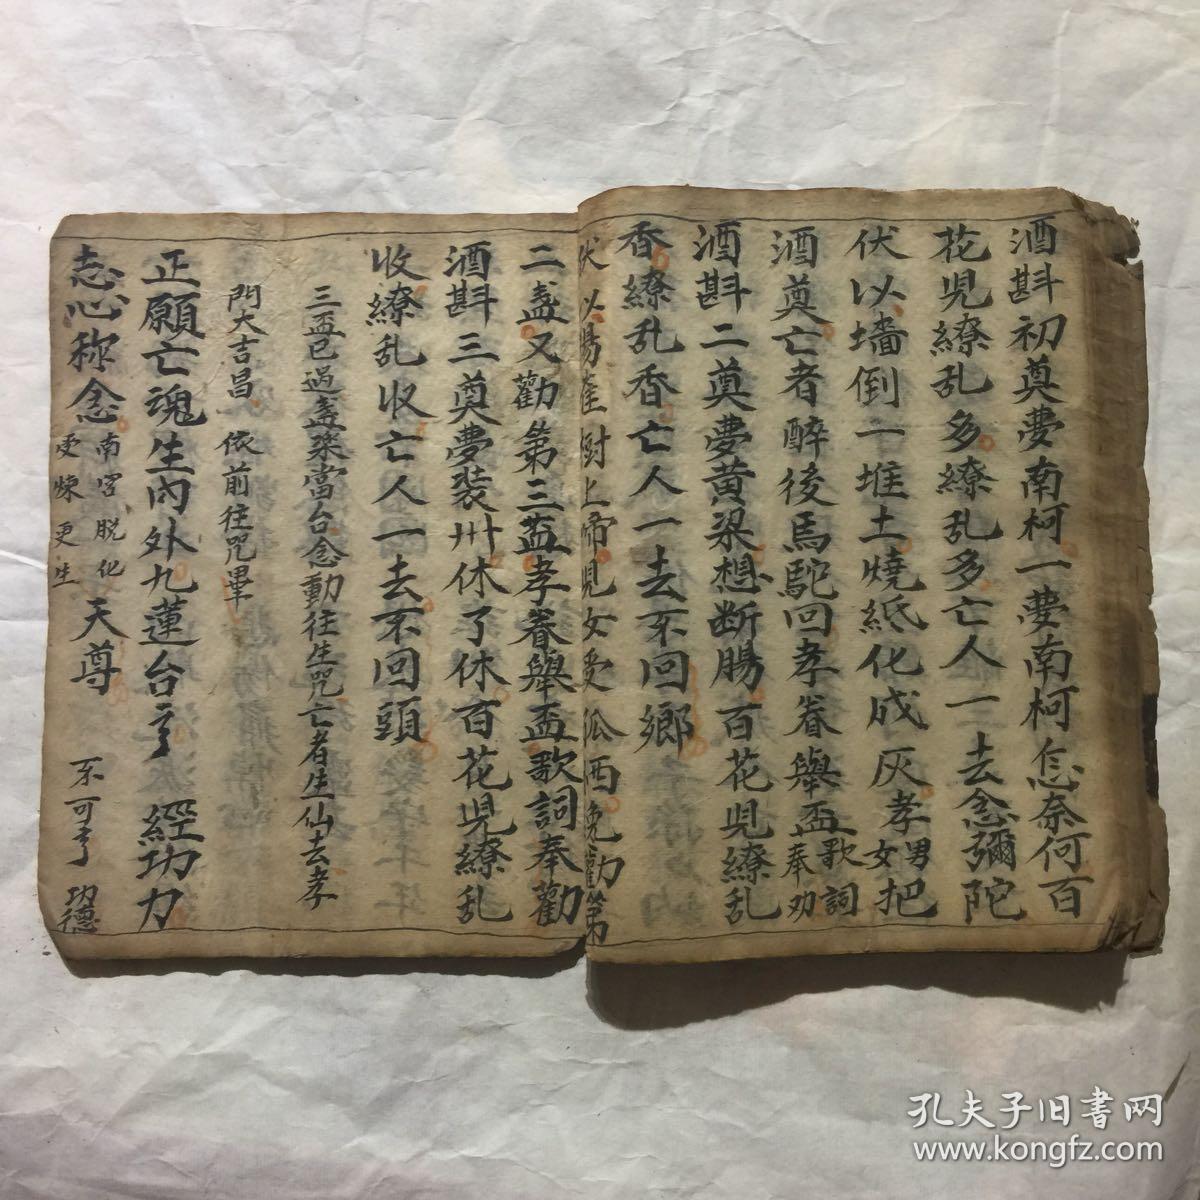 酒斟初奠夢南柯一夢南柯怎奈何百
花児繚乱多繚乱多亡人一去念彌陀
伏以墙倒一堆土燒紙化成灰孝男女把
酒奠亡者醉後馬駝回孝眷舉盃歌詞奉劝
酒斟二奠夢黄梁想断腸百花児繚乱
香繚乱香亡人一去不回鄉
伏以楊 樹上啼児女受孤 第
二盞又勸第三盃孝眷舉盃歌詞奉勸
酒斟三奠夢裝卅休了休百花児繚乱
收繚乱收亡人一去不回頭
三盃已過盞梁當台念動往生咒亡者生仙去孝
門大吉昌 依前往咒畢
正願亡魂生內外九蓮台 經功力
志心称念 南宫脱化受煉更生 天尊 不可 功德
孔夫子旧書网
www.kongfz.com